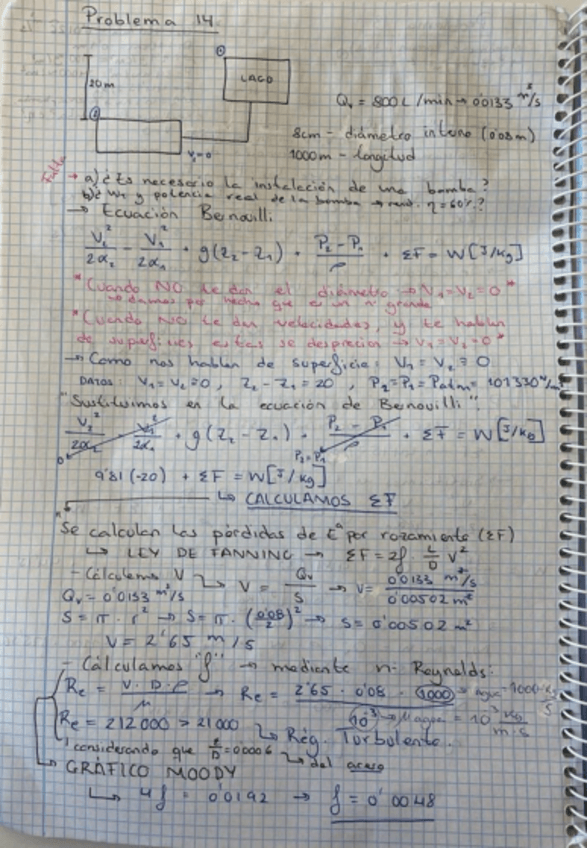 Problema 14.
①
LAGO
20m
②
V₂=0
Qᵥ = 800L/min → 0'0133 m³/s
8cm - diámetro interno (0'08m)
1000m - longitud
Falta → a) ¿Es necesario la instalación de una bomba?
b) ¿W y potencia real de la bomba → rend. η=60%?
→ Ecuación Bernouilli
V₂²/2α₂ - V₁²/2α₁ + g(z₂-z₁) + P₂-P₁/ρ + ΣF = W[J/kg]
*Cuando NO te dan el diámetro → V₁=V₂=0*
→ damos por hecho que es un nº grande
*Cuando NO te dan velocidades, y te hablan
de superficies, estas se desprecian → V₁=V₂=0*
→ Como nos hablan de superficie: V₁ = V₂ = 0
DATOS: V₁=V₂=0, Z₂-Z₁=20, P₂=P₁=Patm= 101330 N/m²
"Sustituimos en la ecuación de Bernouilli".
V₂²/2α₂ - V₁²/2α₁ + g(z₂-z₁) + P₂-P₁/ρ + ΣF = W[J/kg]
0 P₂=P₁
9'81(-20) + ΣF = W[J/kg]
↳ CALCULAMOS ΣF
"Se calculan las pérdidas de Eª por rozamiento (ΣF)
↳ LEY DE FANNING → ΣF=2f · L/D · V²
- Cálculamos V ↳ V = Qᵥ/S → V= 0'0133 m³/s / 0'00502 m²
Qᵥ = 0'0133 m³/s
S = π · r² → S = π · (0'08/2)² → S = 0'00502 m²
V = 2'65 m/s
- Cálculamos "f" → mediante nº Reynolds:
Re = V·D·ρ/μ → Re = 2'65 · 0'08 · (1000)/(10⁻³) → agua=1000 kg/
μ agua = 10⁻³ kg/m·s
Re = 212000 > 21000 ↳ Rég. Turbulento.
considerando que ε/D=0'0006 ↳ del acero
↳ GRÁFICO MOODY
↳ 4f = 0'0192 → f = 0'0048